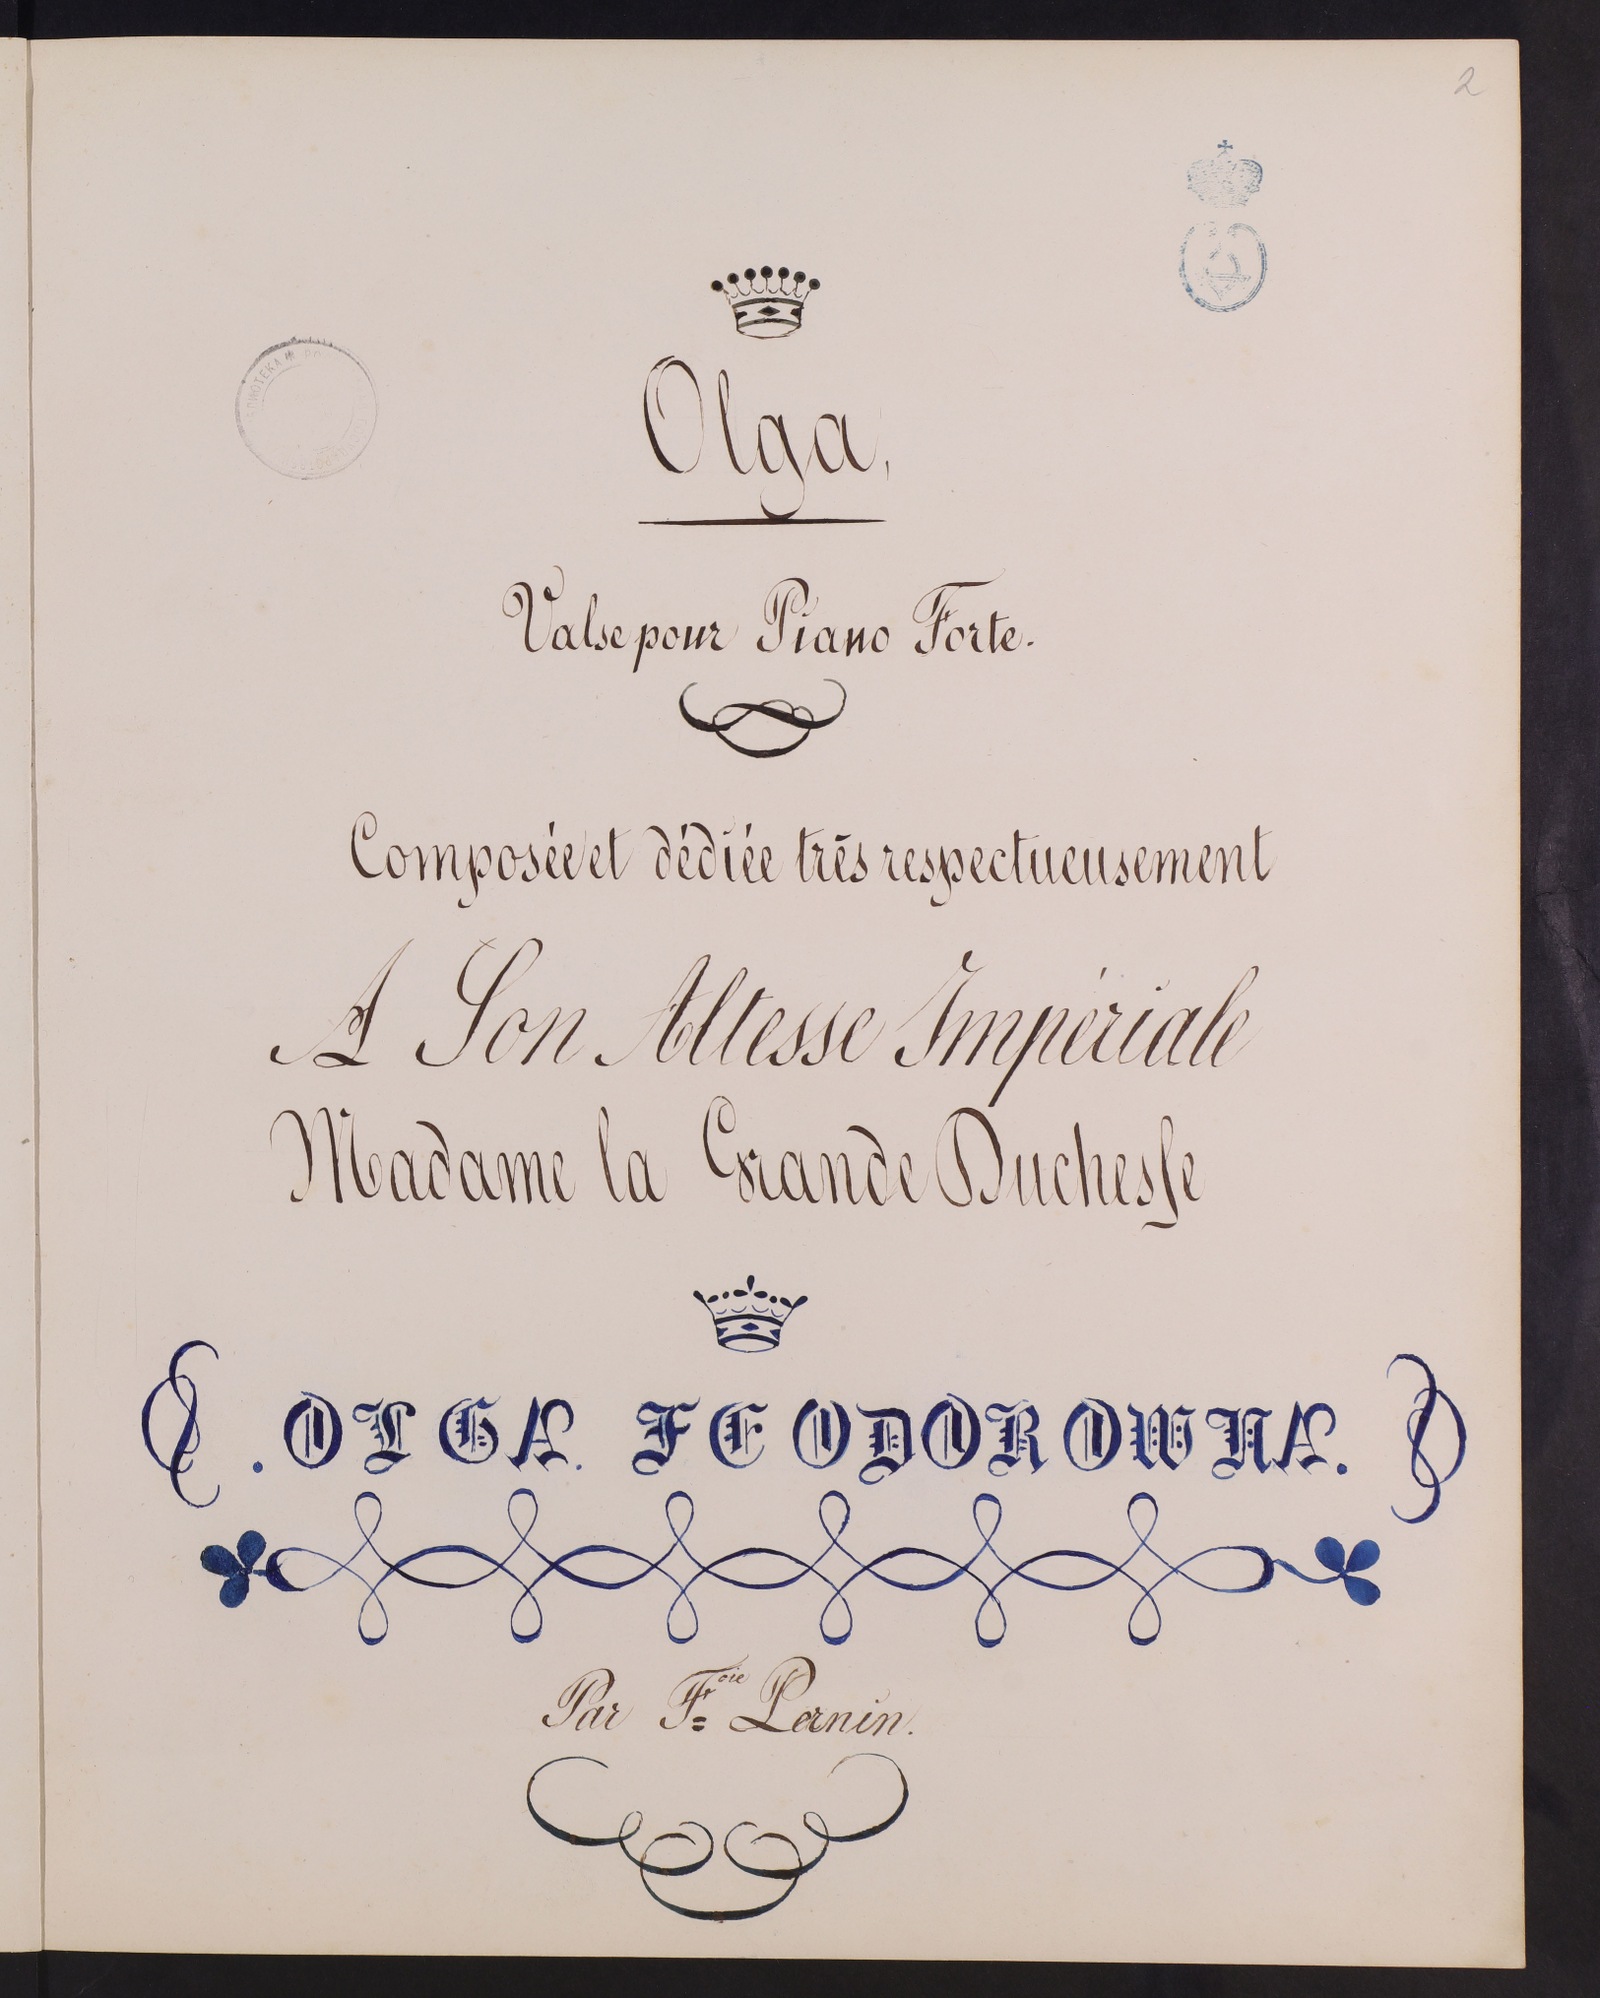 2
Olga,
Valse pour Piano Forte.
Composée et dédiée très respectueusement
A Son Altesse Impériale
Madame la Grande Duchesse
. OLGA. FEODOROWNA.
Par Fr.oie Pernin.